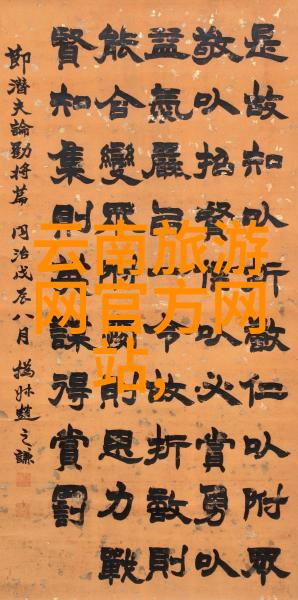 是故知以折敵仁以附眾
敬以招賢信以必賞勇以
益氣嚴以一令故折敵則
能合變眾附則思力戰
賢知集則謀得賞罰
節潛夫論勸將篇 同治戊辰八月 撝叔趙之謙
云南旅游
网官方网
站,